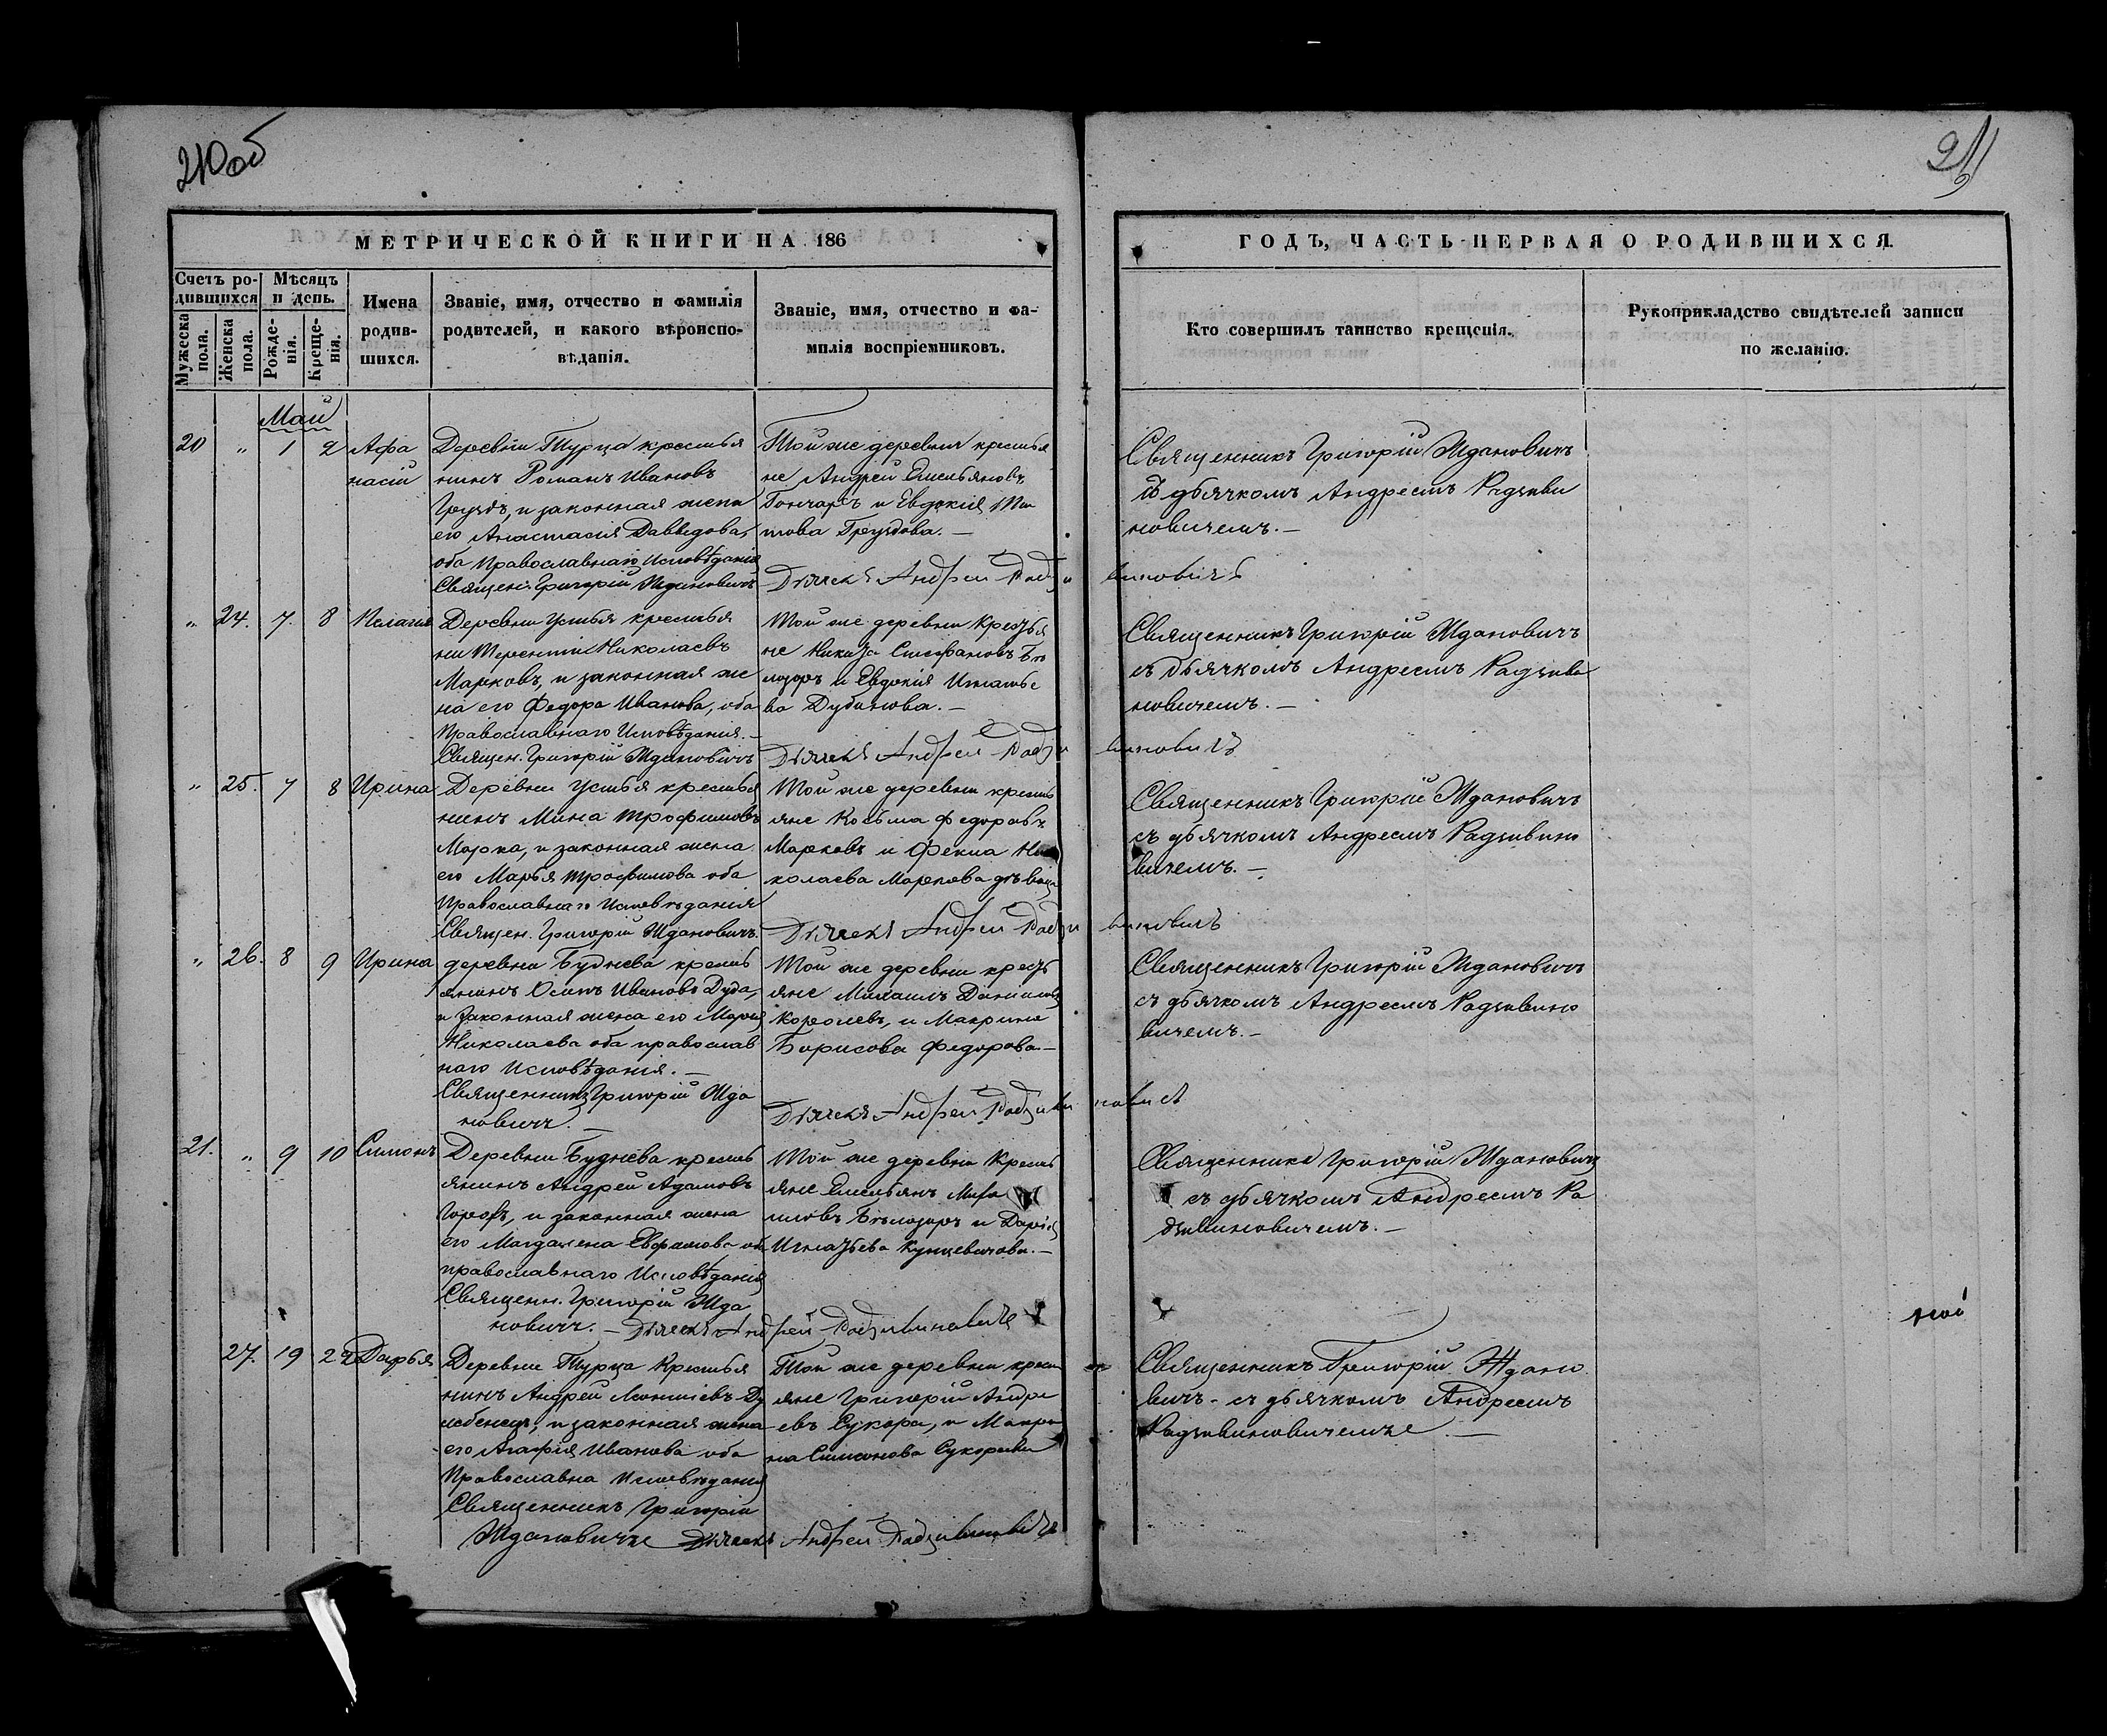 210 об
211
МЕТРИЧЕСКОЙ КНИГИ НА 186
ГОДЪ, ЧАСТЬ ПЕРВАЯ О РОДИВШИХСЯ.
Счетъ ро-
дившихся
Мужеска пола.
Женска пола.
Мѣсяцъ
и день.
Рожде-
нія.
Креще-
нія.
Имена
родив-
шихся.
Званіе, имя, отчество и фамилія
родителей, и какого вѣроиспо-
вѣданія.
Званіе, имя, отчество и фа-
милія воспріемниковъ.
Кто совершилъ таинство крещенія.
Рукоприкладство свидѣтелей записи
по желанію.
Май
20 " 1 2 Афа
насій
Деревни Турца крестья
нинъ Романъ Ивановъ
Груздъ, и законная жена
его Анастасія Давыдова,
оба Православнаго Исповѣданія
Священ. Григорій Ждановичъ
Той же деревни крестья
не Андрей Емельяновъ
Гончаръ и Евдокія Ти
това Груздова. —
Дьячекъ Андрей Радзивиновичъ
Священникъ Григорій Ждановичъ
съ дьячкомъ Андреемъ Радзиви
новичемъ. —
" 24. 7. 8 Пелагия
Деревни Устья крестья
нин Терентій Николаевъ
Марковъ, и законная же
на его Федора Иванова, оба
Православнаго Исповѣданія. —
Священ. Григорій Ждановичъ
Той же деревни Крестья
не Никита Стефановъ Бѣ
лозоръ и Евдокія Игнатье
ва Дубинова. —
Дьячекъ Андрей Радзивиновичъ
Священникъ Григорій Ждановичъ
съ дьячкомъ Андреемъ Радзиви
новичемъ. —
" 25. 7 8 Ирина
Деревни Устья крестья
нинъ Мина Трофимовъ
Марка, и законная жена
его Марья Трофимова оба
Православнаго Исповѣданія
Священ. Григорій Ждановичъ.
Той же деревни кресть
яне Косьма Федоровъ
Марковъ и Фекла Ни
колаева Маркова дѣвица
Дьячекъ Андрей Радзивиновичъ
Священникъ Григорій Ждановичъ
съ дьячкомъ Андреемъ Радзивино
вичемъ. —
" 26. 8 9 Ирина
деревни Буднева кресть
янинъ Осипъ Ивановъ Дуда,
и законная жена его Марія
Николаева оба православ
наго Исповѣданія. —
Священникъ Григорій Жда
новичъ. —
Той же деревни кресть
яне Михаилъ Даниловъ
и Макрина
Борисова Федорова —
Дьячекъ Андрей Радзивиновичъ
Священникъ Григорій Ждановичъ
съ дьячкомъ Андреемъ Радзивино
вичемъ. —
21. " 9 10 Симонъ
Деревни Буднева кресть
янинъ Андрей Адамовъ
и законная жена
его Магдалена оба
православнаго Исповѣданія
Священн. Григорій Жда
новичъ. — Дьячекъ Андрей Радзивиновичъ
Той же деревни Кресть
яне Емельянъ
Бѣлозоръ и Дарія
Игнатьева Кунцевичова. —
Священникъ Григорій Ждановичъ
съ дьячкомъ Андреемъ Ра
дзивиновичемъ. —
27. 19 22 Дарья
Деревни Турца Крестья
нинъ Андрей
и законная жена
его Агафія Иванова оба
Православна Исповѣданія
Священникъ Григорій
Ждановичъ Дьячекъ Андрей Радзивиновичъ
Той же деревни крест
яне Григорій Андре
евъ Сукора, и Макри
на Симонова
Священникъ Григорій Ждано
вичъ - съ дьячкомъ Андреемъ
Радзивиновичемъ. —